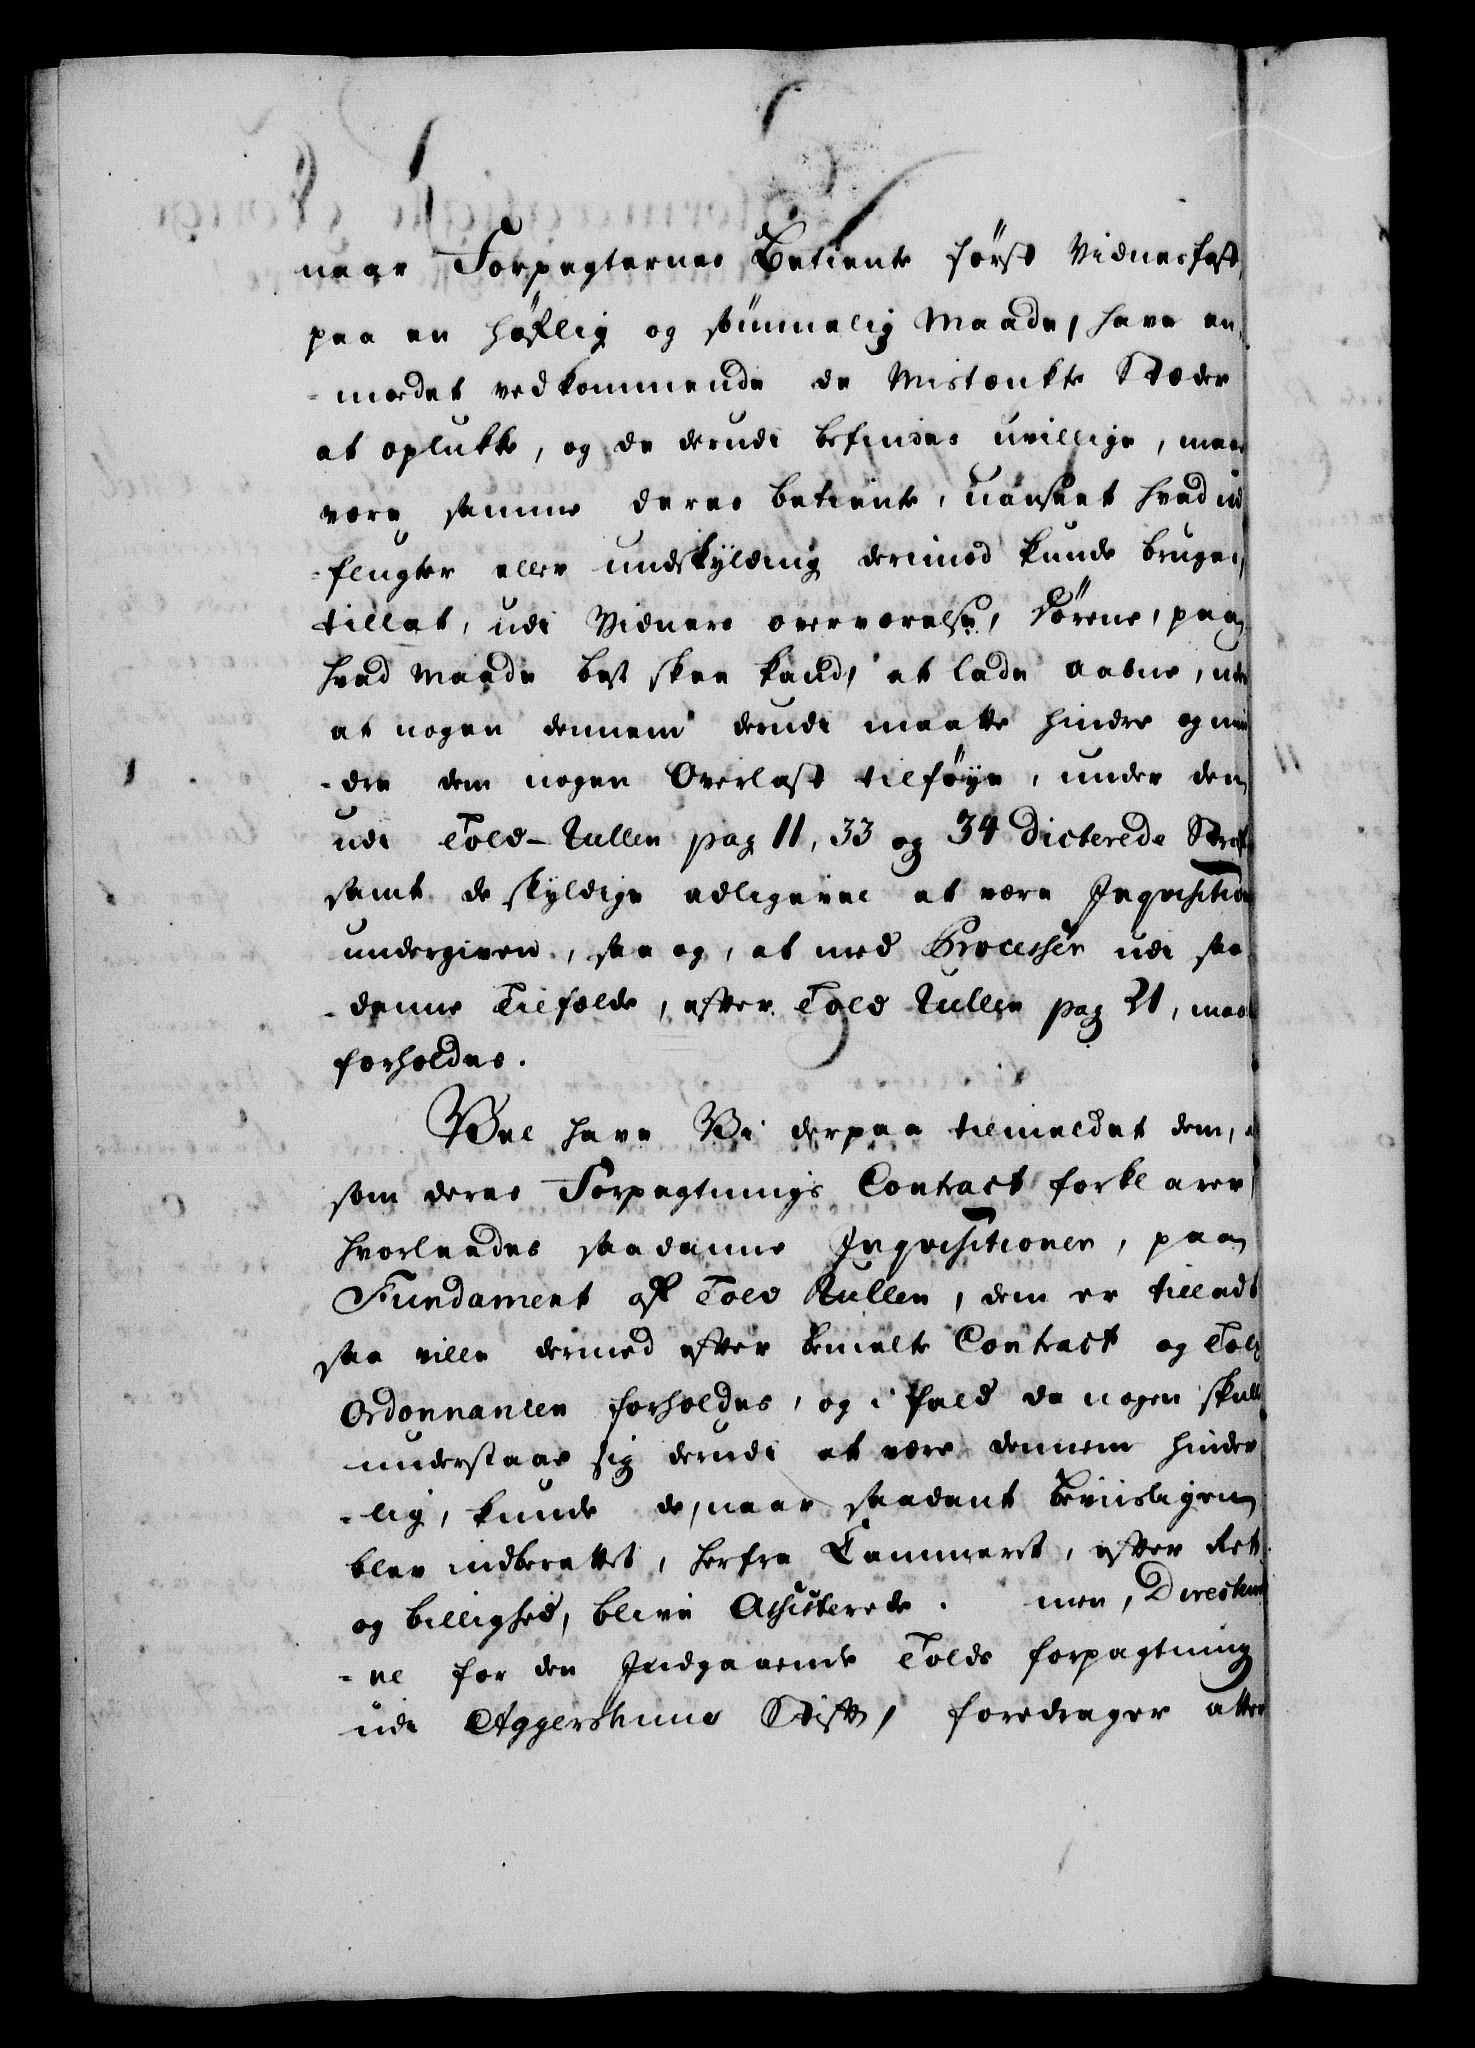 naar Forpagternes Betiente først Vidnesfast,
paa en höflig og sömmelig Maade, have an-
-modet vedkommende de Mistænkte Stæder
at oplukke, og de derudi befindes uvillige, maa
være samme deres betiente, uanseet hvad ud
-flugter eller undskylding derimod kunde bruges,
tillat, udi Vidners overværelse, Dörene, paa
hvad Maade best skee kand, at lade aabne, uden
at nogen dennem derudi maatte hindre og min
-dre dem nogen Overlast tilföye, under den
udi Told-Rullen pag 11, 33 og 34 Dicterede Straf
samt de skyldige adligevel at være Inqvisition
undergiven, saa og, at med Processer udi saa-
-danne Tilfælde, efter Told Rullen pag 21, maa
forholdes.
Vel have Vi derpaa tilmeldet dem,
som deres Forpagtnings Contract forklarer
hvorleedes saadanne Inqvisitioner, paa
Fundament af Told Rullen, dem er tilladt
saa ville dermed efter bemelte Contract og Told
Ordonnancen forholdes, og i fald da nogen skulle
understaae sig derudi at være dennem hinder
-lig, kunde de, naar saadant beviisligen
blev indberettet, herfra Cammeret, efter Ret
og billighed, blive Assisterede. men, Directeur
-ne for den Indgaaende Tolds forpagtning
udi Aggershuus Stift, foredrager atter